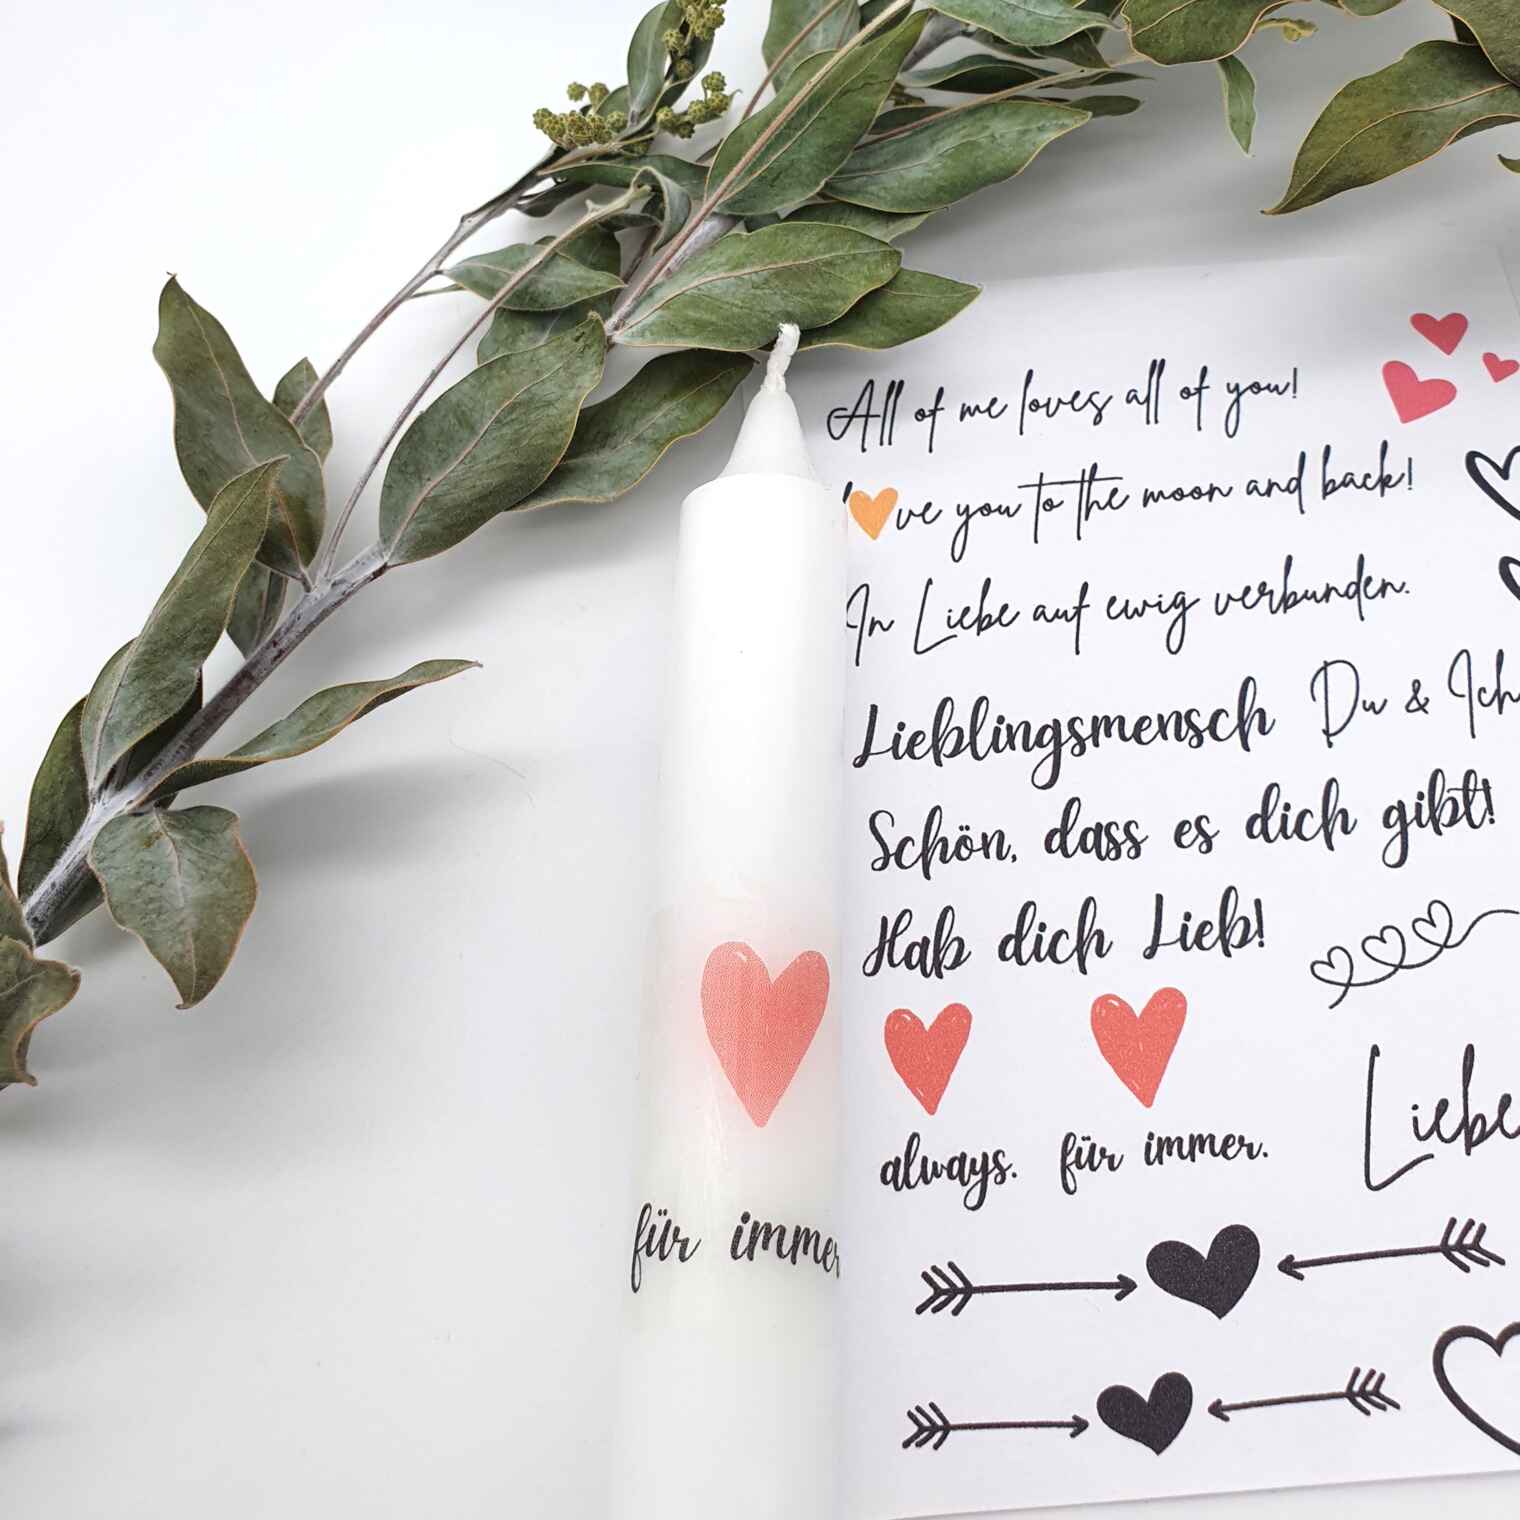 All of me loves all of you!
ve you to the moon and back!
In Liebe auf ewig verbunden.
Lieblingsmensch Du & Ich
Schön, dass es dich gibt!
Hab dich Lieb!
always. für immer.
Liebe
für immer